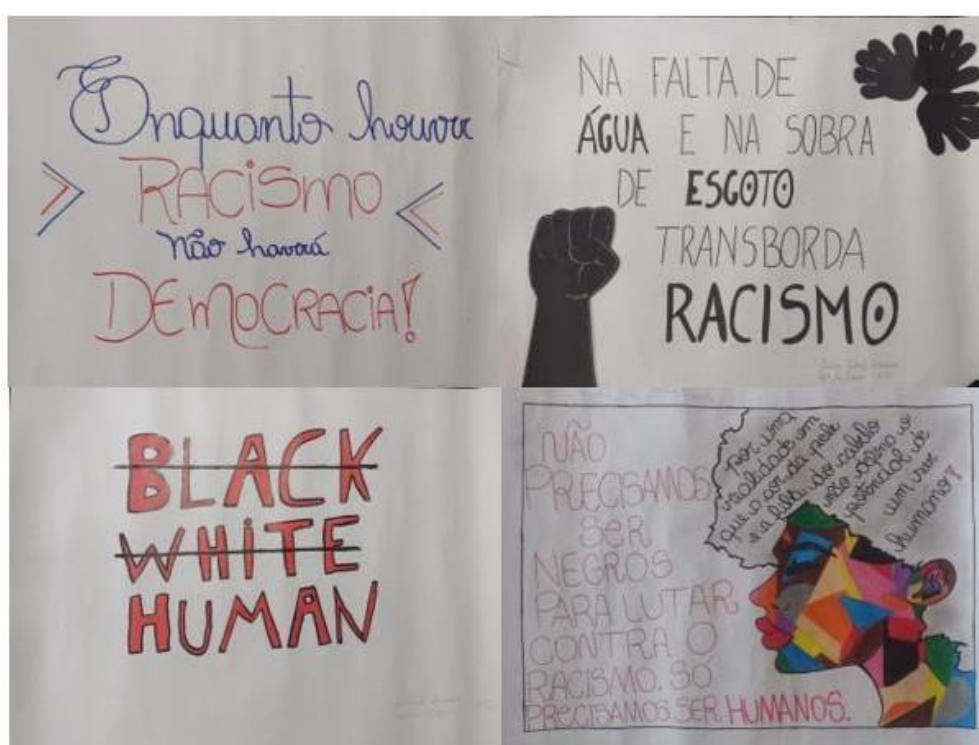 Enquanto houver
RACISMO
não haverá
DEMOCRACIA!
NA FALTA DE
ÁGUA E NA SOBRA
DE ESGOTO
TRANSBORDA
RACISMO
BLACK
WHITE
HUMAN
NÃO
PRECISAMOS
SER
NEGROS
PARA LUTAR
CONTRA O
RACISMO. SÓ
PRECISAMOS SER HUMANOS.
por uma
realidade em
que a cor da pele
e a do cabelo
não defina o
potencial de
um ser
humano!